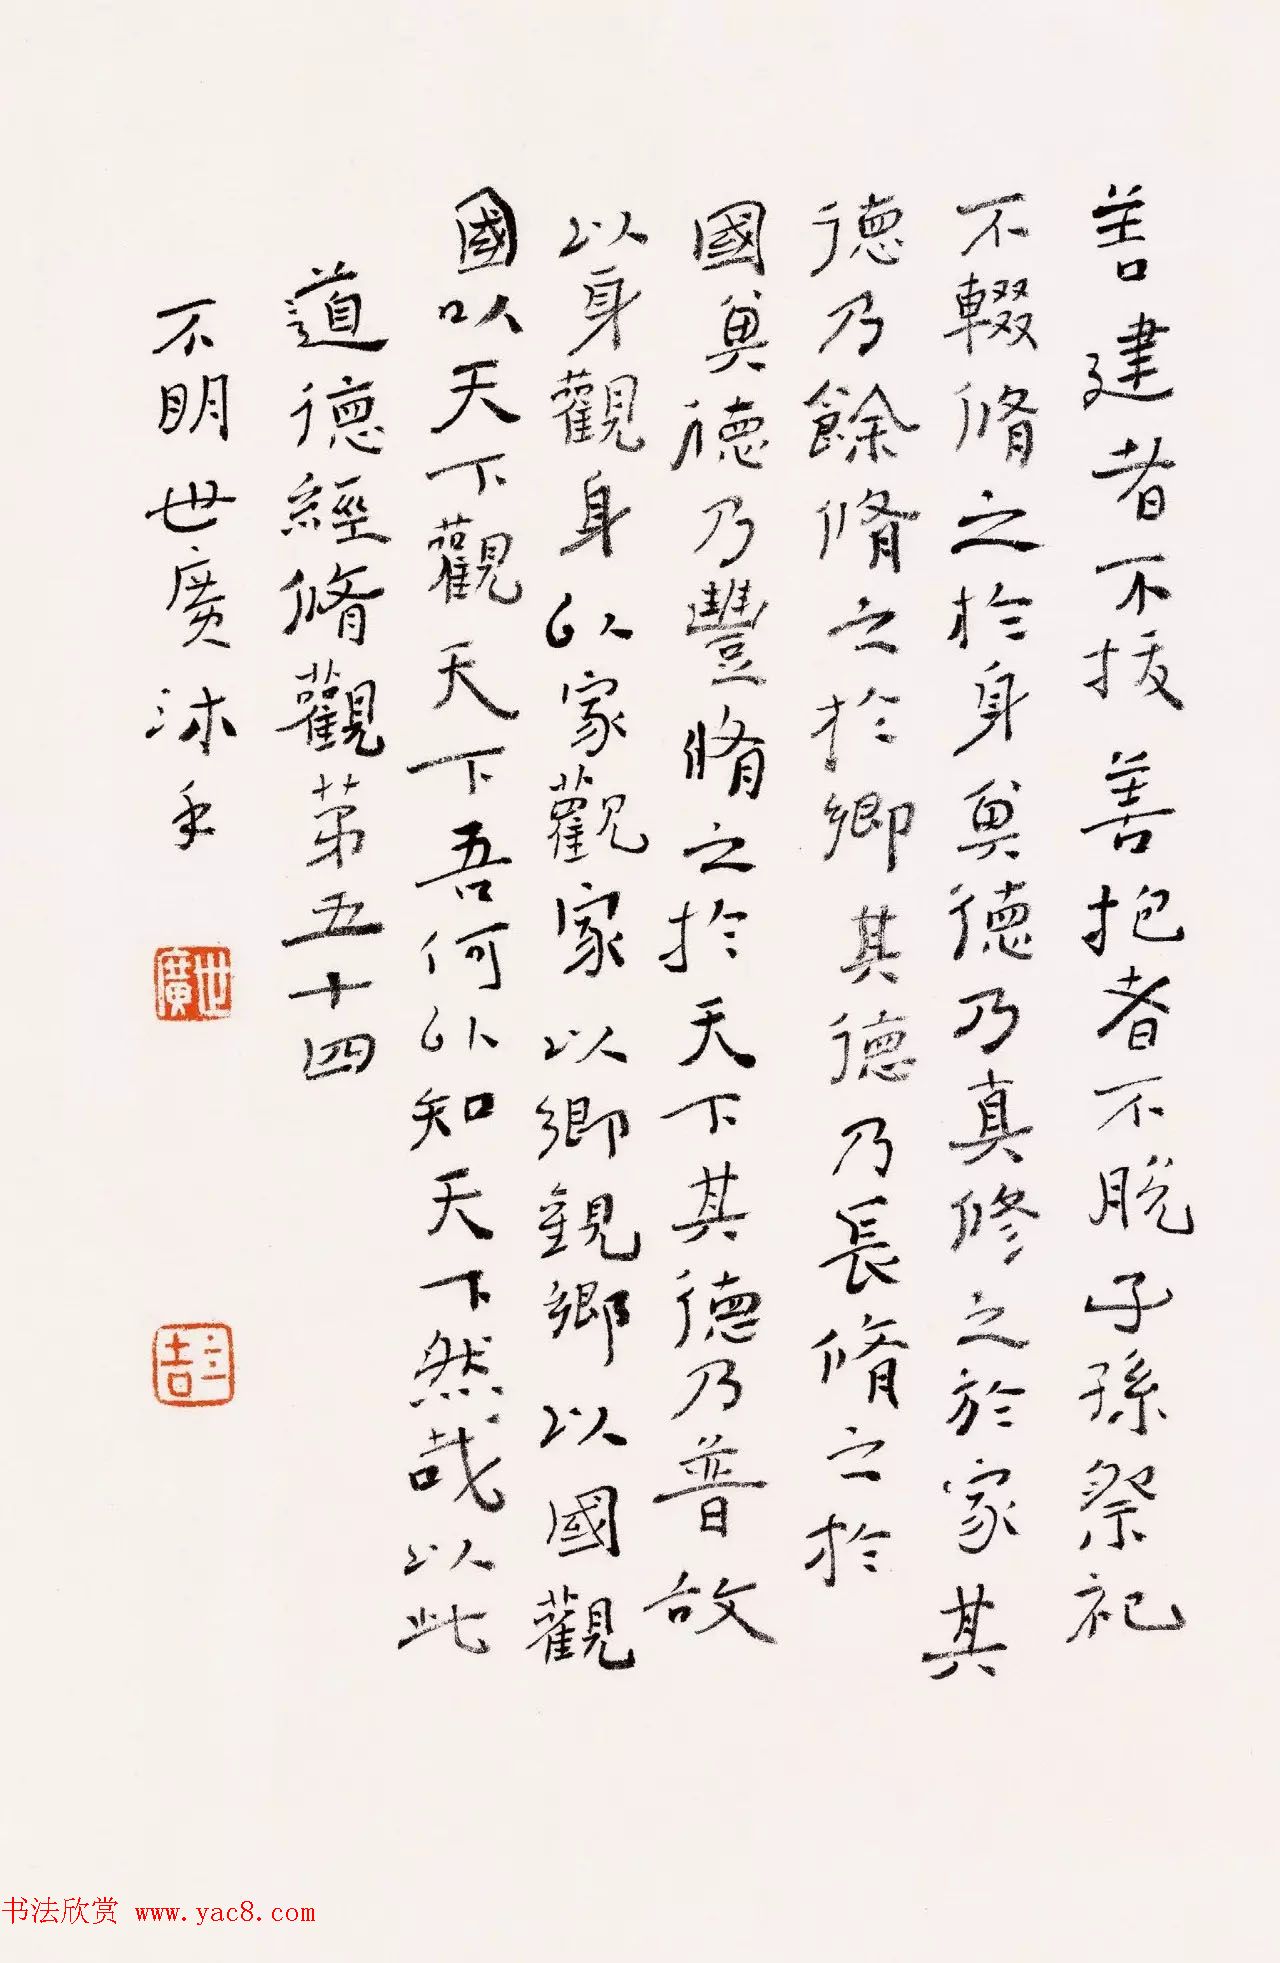 善建者不拔善抱者不脫子孫祭祀
不輟脩之於身其德乃真修之於家其
德乃餘脩之於鄉其德乃長脩之於
國其德乃豐脩之於天下其德乃普故
以身觀身以家觀家以鄉觀鄉以國觀
國以天下觀天下吾何以知天下然哉以此
道德經脩觀第五十四
不明世廣沐手
世廣
書法欣赏 www.yac8.com